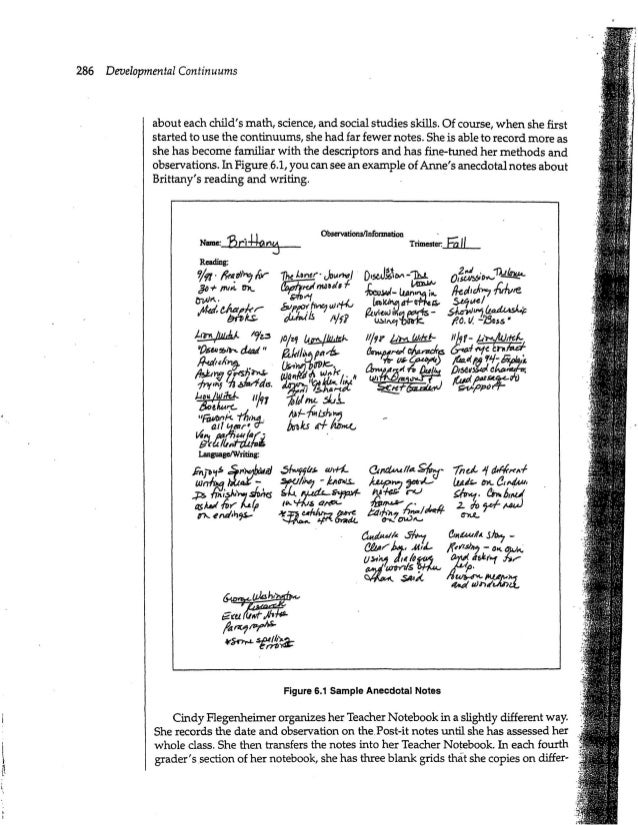 286 Developmental Continuums
about each child's math, science, and social studies skills. Of course, when she first
started to use the continuums, she had far fewer notes. She is able to record more as
she has become familiar with the descriptors and has fine-tuned her methods and
observations. In Figure 6.1, you can see an example of Anne's anecdotal notes about
Brittany's reading and writing.
Observations/Information
Name: Brittany Trimester: Fall
Reading:
9/98 Reading for
30+ min on
own.
Med. chapter
books
The Loner - Journal
Captured moods of
story
Supporting with
details 11/98
1st
Discussion - The Loner
focused - leaning in
looking at others
Reviewing parts -
using book
2nd
Discussion The Loner
Predicting future
Sequel
Showing leadership
P.O.V. "Boss"
Lion/Witch 10/23
"Discussion dead"
Predicting
Asking questions
trying to start dis.
10/29 Lion/Witch
Retelling parts
Using book
Wanted to write
down "golden line"
shared
11/98 Lion/Witch
Compared characters
to us (people)
Compared to
with Dragons &
Secret Garden
11/98 - Lion/Witch
Great eye contact
Read pg 94 - Explain
Discussed character
Read passage to
support
Lion/Witch 11/98
Brochure
"Favorite thing
all year"
Very particular;
Excellent details
Told me she's
not finishing
books at home
Language/Writing:
Enjoys Springboard
writing ideas -
Is finishing stories
asked for help
on endings
Struggles with
spelling - knows
she needs support
in this area
* Is catching more
than 4th Grade
Cinderella Story -
keeping good
notes on
frames
Editing final draft
on own
Tried 4 different
leads on Cinder.
Story. Combined
2 to get new
one
Cinderella Story
Clear beg. Mid.
using dialogue
and words other
than said
Cinderella Story -
Revising - on own
and asking for
help.
Focus on meaning
and word choice
George Washington
Research
Excellent Notes
Paragraphs
*Some spelling
errors
Figure 6.1 Sample Anecdotal Notes
Cindy Flegenheimer organizes her Teacher Notebook in a slightly different way.
She records the date and observation on the Post-it notes until she has assessed her
whole class. She then transfers the notes into her Teacher Notebook. In each fourth
grader's section of her notebook, she has three blank grids that she copies on differ-